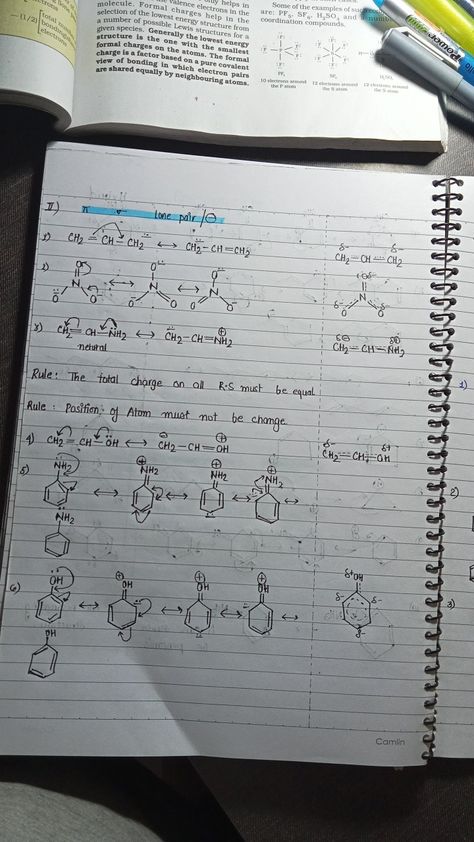 molecule. Formal charges help in the
selection of the lowest energy structure from
a number of possible Lewis structures for a
given species. Generally the lowest energy
structure is the one with the smallest
formal charges on the atoms. The formal
charge is a factor based on a pure covalent
view of bonding in which electron pairs
are shared equally by neighbouring atoms.
Some of the examples of
are: PF₅, SF₆, H₂SO₄ and a
coordination compounds.
PF₅
SF₆
H₂SO₄
10 electrons around
the P atom
12 electrons around
the S atom
12 electrons around
the S atom
II) π σ lone pair/⊖
CH₂=CH-CH₂ ↔ CH₂-CH=CH₂
CH₂=CH=CH₂
CH₂=CH-NH₂ ↔ CH₂-CH=NH₂
neutral
CH₂=CH=NH₂
Rule: The total charge on all R.S must be equal
Rule: Position of Atom must not be change
4) CH₂=CH-OH ↔ CH₂-CH=OH
CH₂=CH=OH
5) NH₂ ↔ NH₂ ↔ NH₂ ↔ NH₂ ↔
NH₂
6) OH ↔ OH ↔ OH ↔ OH ↔
OH
OH
Camlin